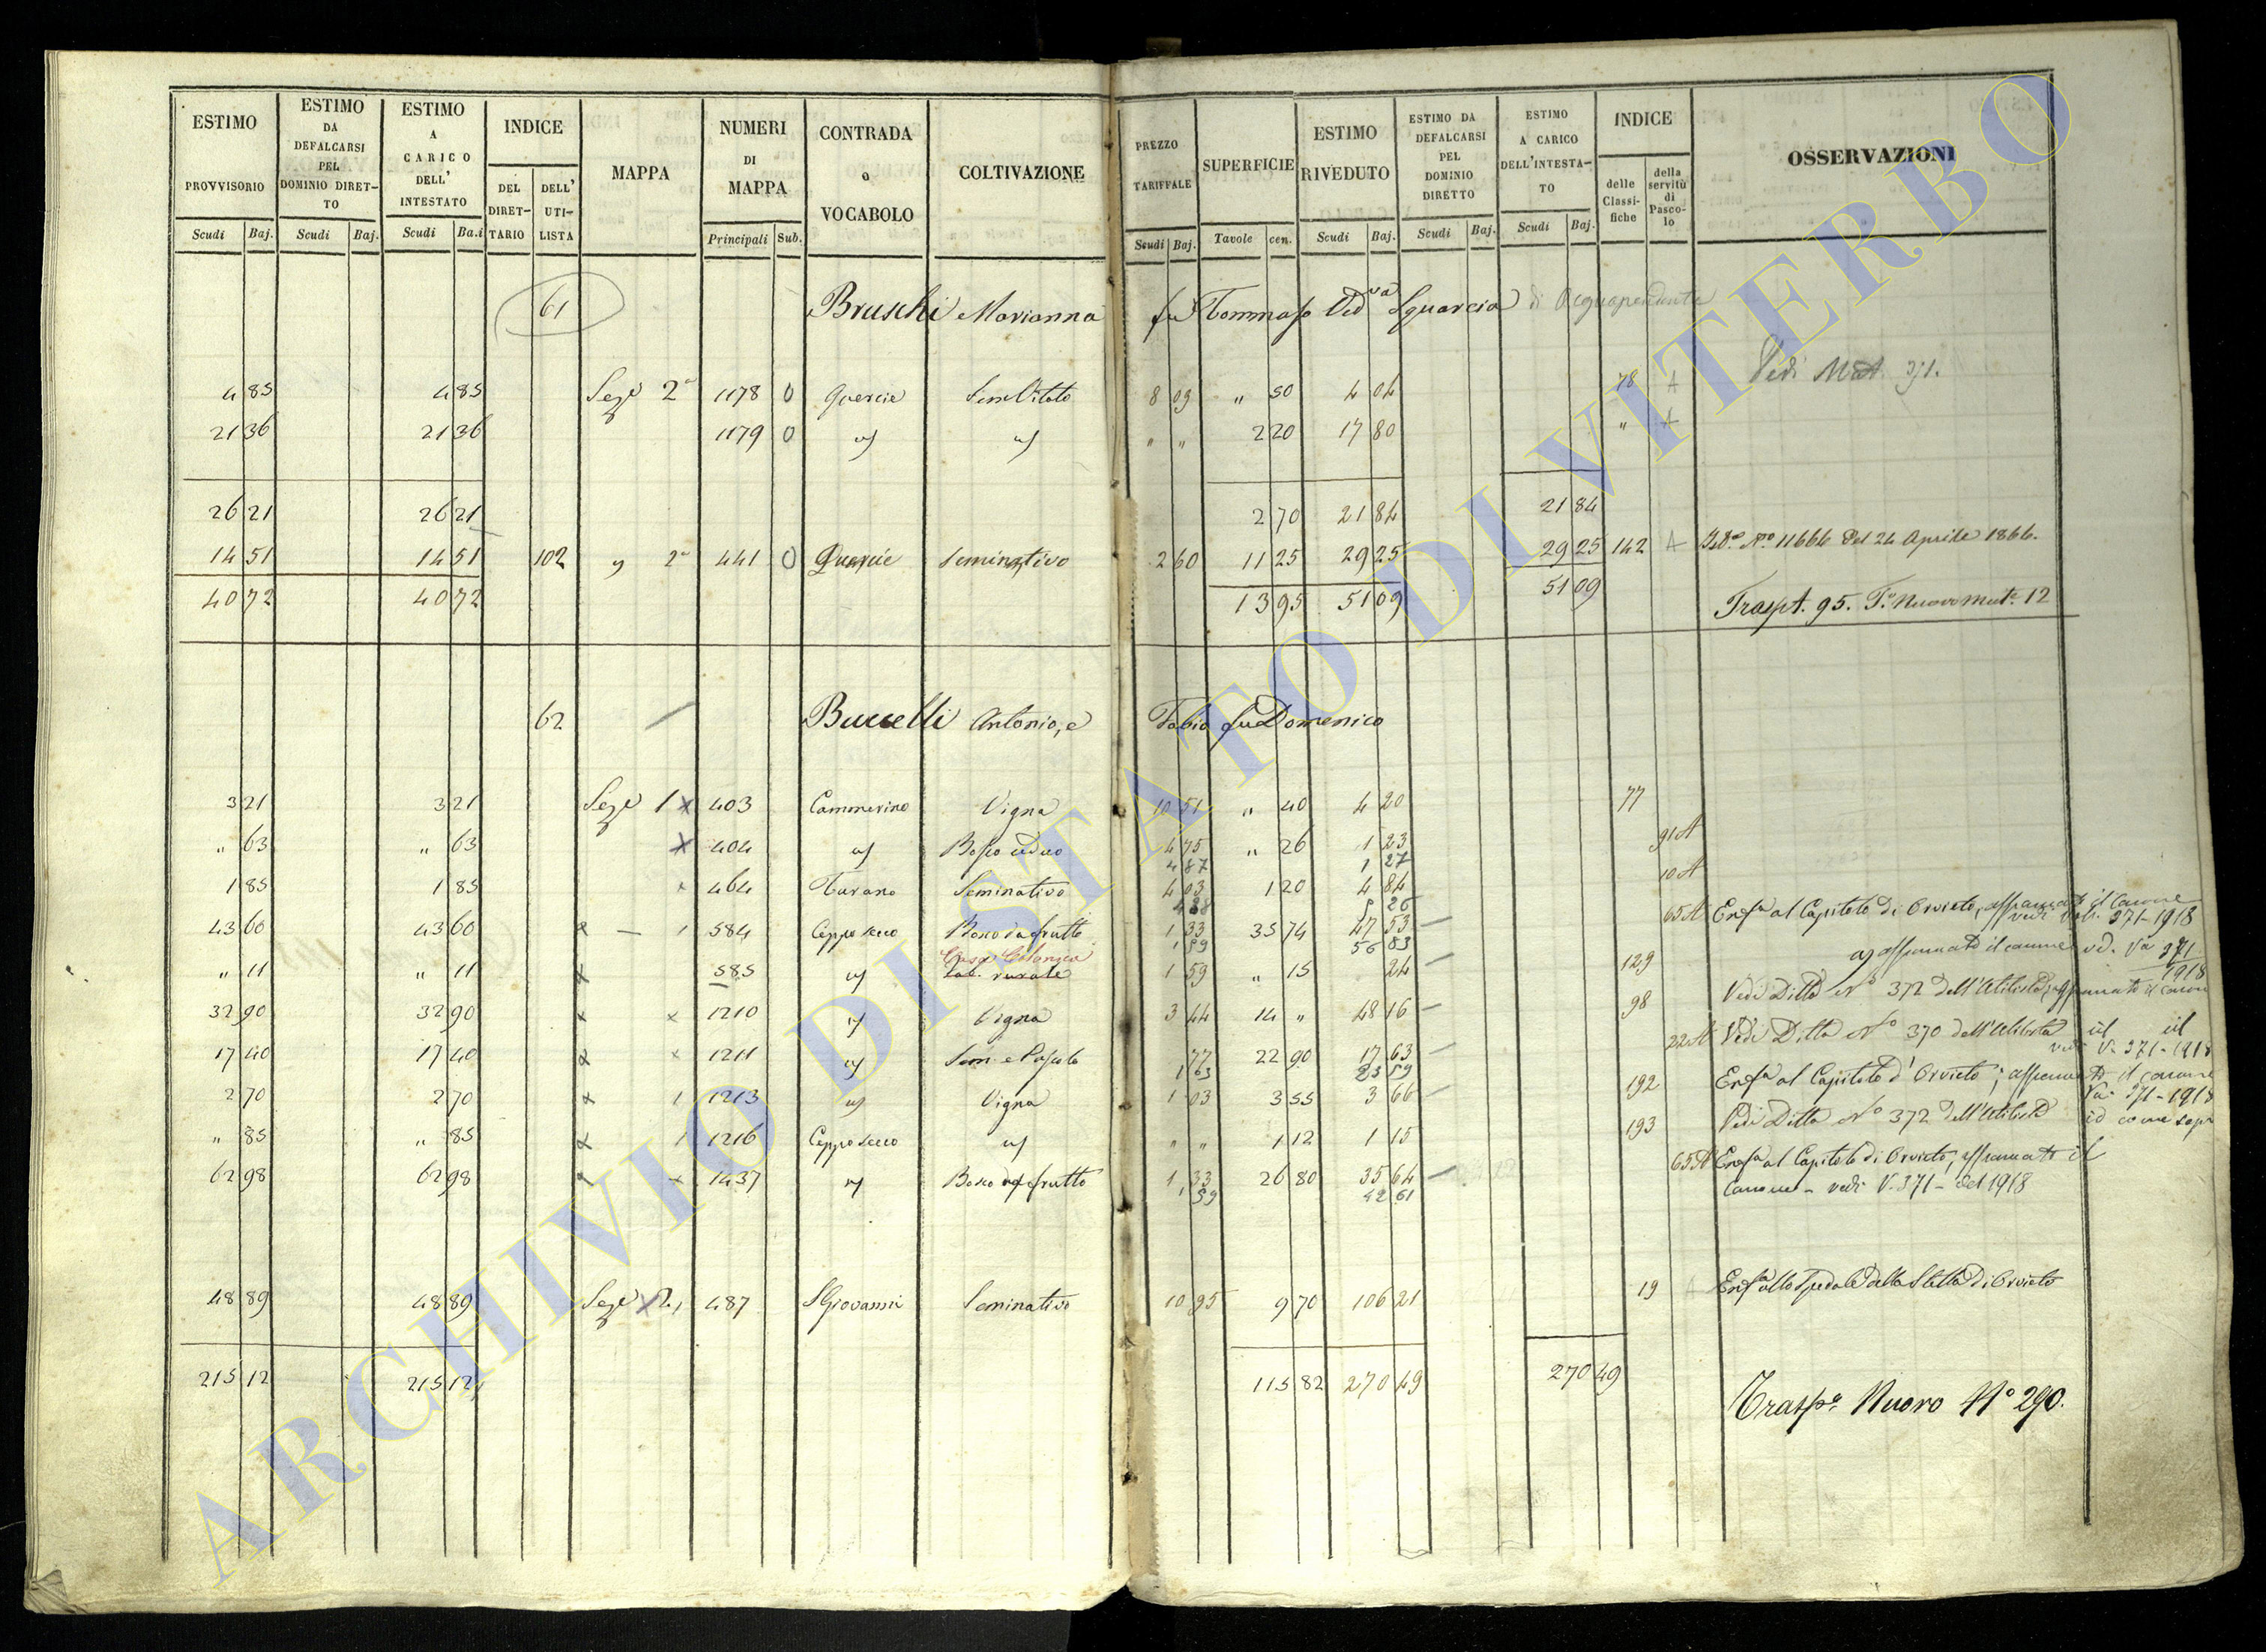 ESTIMO PROVVISORIO Scudi Baj.
ESTIMO DA DEFALCARSI PEL DOMINIO DIRET-TO Scudi Baj.
ESTIMO A CARICO DELL' INTESTATO Scudi Ba.i
INDICE DEL DIRET-TARIO DELL' UTI-LISTA
MAPPA
NUMERI DI MAPPA Principali Sub.
CONTRADA o VOCABOLO
COLTIVAZIONE
PREZZO TARIFFALE Scudi Baj.
SUPERFICIE Tavole cen.
ESTIMO RIVEDUTO Scudi Baj.
ESTIMO DA DEFALCARSI PEL DOMINIO DIRETTO Scudi Baj.
ESTIMO A CARICO DELL'INTESTA-TO Scudi Baj.
INDICE delle Classi-fiche della servitù di Pasco-lo
OSSERVAZIONI
61 Bruschi Marianna fu Tommaso Ved.va Squarcia di Acquapendente
Vedi Mat. 371.
4 85 4 85 Sez.e 2a 1178 0 Quercie Sem Vitato 8 09 " 50 4 04 78 A
21 36 21 36 1179 0 " " 2 20 17 80 " A
26 21 26 21 2 70 21 84 21 84
14 51 14 51 102 2a 441 0 Quercie Seminativo 2 60 11 25 29 25 29 25 142 A No 11664 del 24 Aprile 1866.
40 72 40 72 13 95 51 09 51 09 Traspt. 95. To Nuovo Mat. 12
62 Buccelli Antonio, e Fabio fu Domenico
3 21 3 21 Sez.e 1 x 403 Cammerino Vigna 10 51 " 40 4 20 77
" 63 " 63 x 404 Bosco ceduo 4 75 " 26 1 23 91 A
4 87 1 27
1 85 1 85 x 464 Tarano Seminativo 4 03 1 20 4 84 10 A
4 38 5 26
43 60 43 60 x 1 584 Ceppo secco Bosco da frutto 1 33 35 74 47 53 65 A Enf.a al Capitolo di Orvieto, affrancato il Canone
1 59 56 83 vedi 371-1918
" 11 " 11 x 585 Casa Colonica 1 59 " 15 24 129 affrancato il canone ved. Va 371
Fab. rurale 1918
32 90 32 90 x x 1210 Vigna 3 44 14 " 48 16 98 Vedi Ditta No 372 dell'Utilista, affrancato il canone
17 40 17 40 x x 1211 Sem. e Pascolo 77 22 90 17 63 22 A Vedi Ditta No 370 dell'Utilista id id
1 03 23 59 vedi V. 371-1918
2 70 2 70 x 1 1213 Vigna 1 03 3 55 3 66 192 Enf.a al Capitolo d'Orvieto; affrancato il canone
Va 371-1918
" 85 " 85 x 1 1216 Ceppo secco " " 1 12 1 15 193 Vedi Ditta No 372 dell'Utilista id come sopr
62 98 62 98 x 1437 Bosco da frutto 1 33 26 80 35 64 65 A Enf.a al Capitolo di Orvieto, affrancato il
1 59 42 61 Canone - vedi V. 371 - del 1918
48 89 48 89 Sez.e 2a 487 S Giovanni Seminativo 10 95 9 70 106 21 19 A Enf.a allo Spedale della Stella di Orvieto
215 12 215 12 115 82 270 49 270 49
Trasp.o Nuovo No 290.
ARCHIVIO DI STATO DI VITERBO